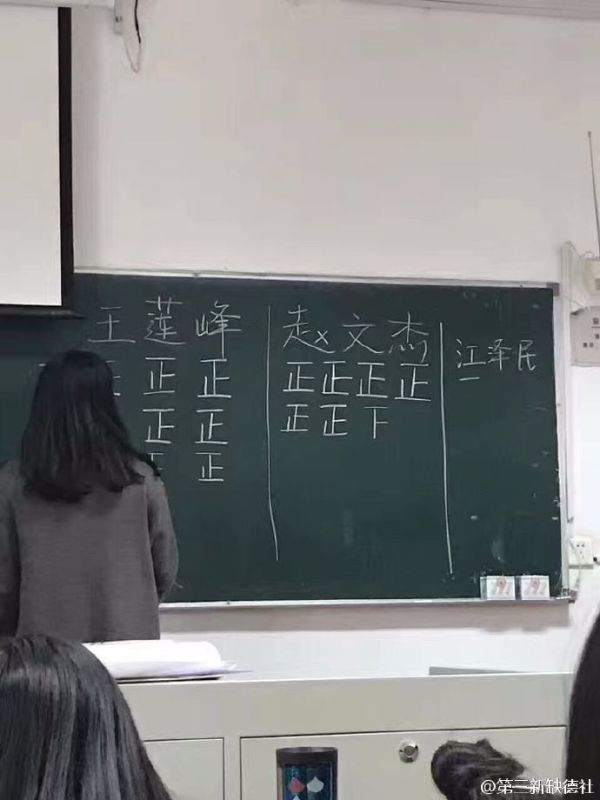 王莲峰
正正
正正
正
赵文杰
正正正正
正正下
江泽民
一
@第三新缺德社